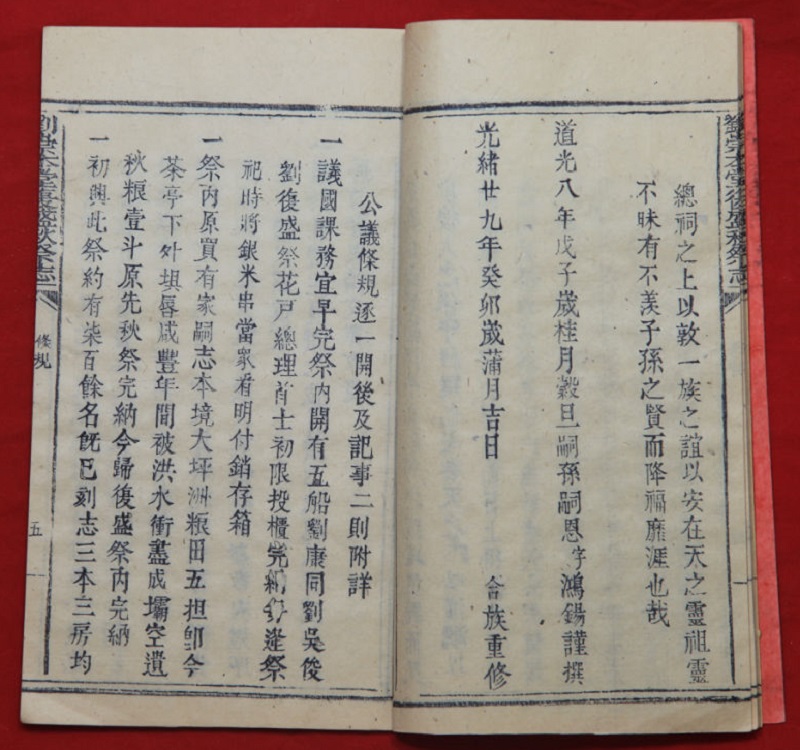 總祠之上以敦一族之誼以安在天之靈祖靈
不昧有不羡子孫之賢而降福靡涯也哉
道光八年戊子歲桂月穀旦嗣孫嗣恩字鴻錫謹撰
光緒廿九年癸卯歲蒲月吉日 合族重修
公議條規逐一開後及記事二則附詳
一議國課務宜早完祭内開有五船劉康同劉吳俊
劉復盛祭花戸總理首士初限投櫃完納毎逢祭
祀時將銀米串當衆看明付銷存箱
一祭内原買有家嗣志本境大坪洲粮田五担卽今
茶亭下外塅唇咸豐年間被洪水衝盡成壩空遺
秋粮壹斗原先秋祭完納今歸復盛祭内完納
一初興此祭約有柒百餘名旣已刻志三本三房均
條規
五